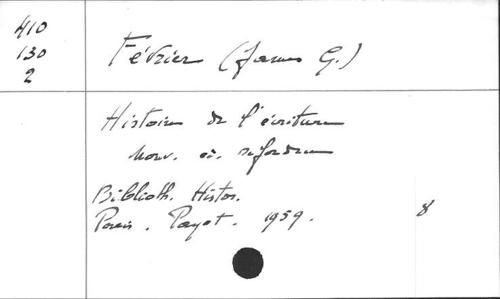 410
130
2
Février (James G.)
Histoire de l'écriture
Nouv. éd. refondue
Biblioth. Histor.
Paris. Payot. 1959.
8